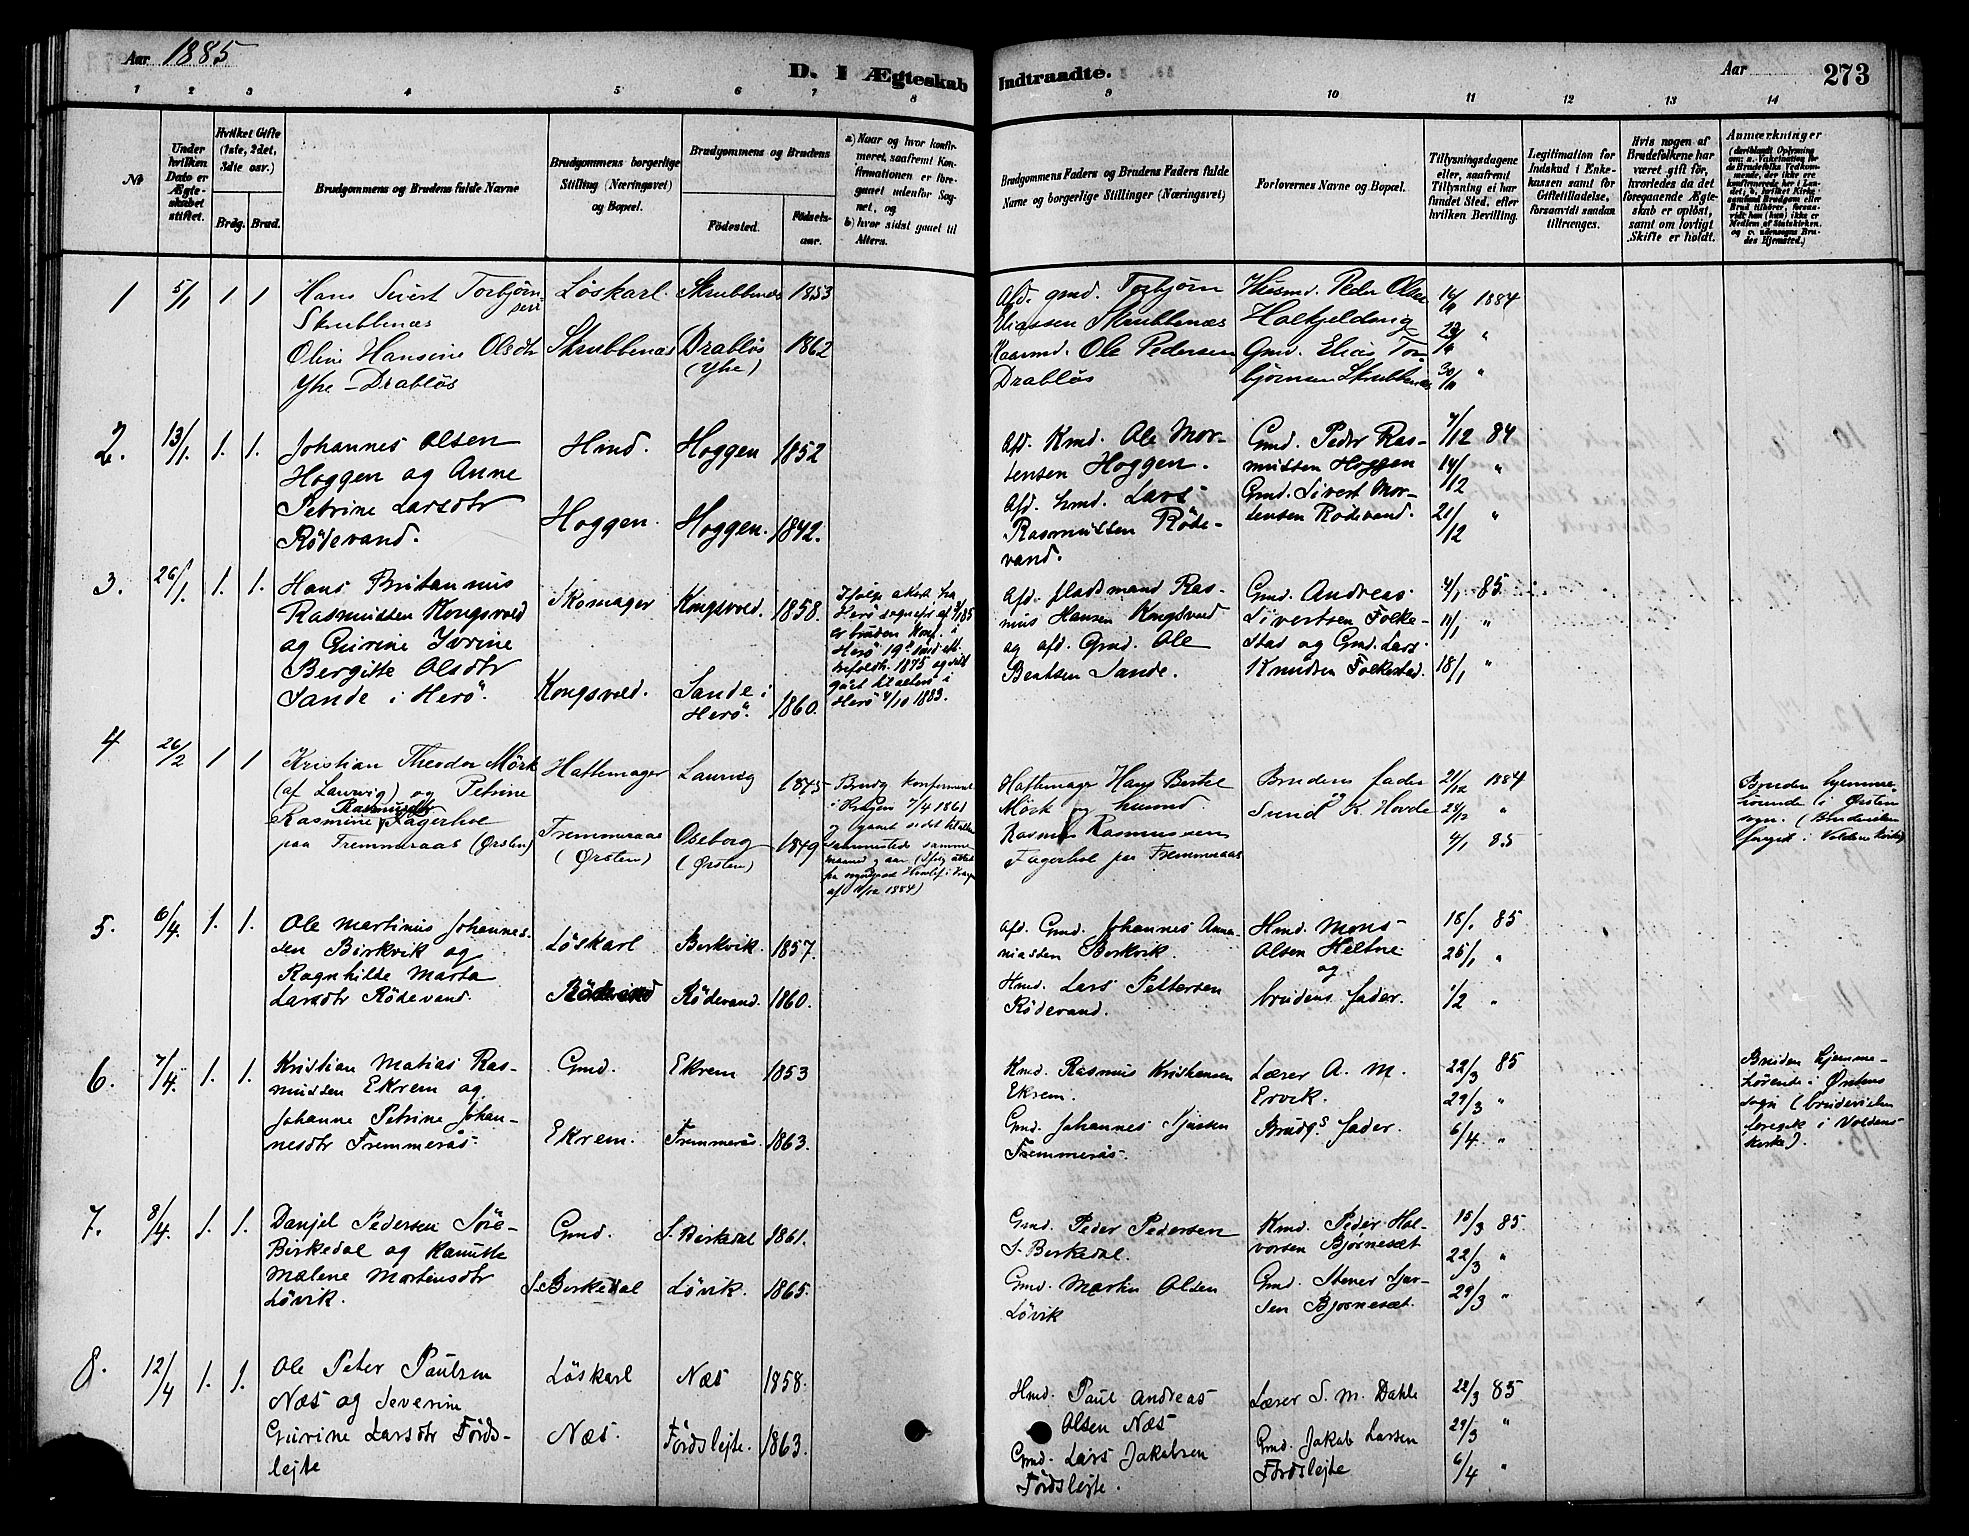 Aar 1885
D. I Ægteskab Indtraadte.
Aar 273
1 2 3 4 5 6 7 8 9 10 11 12 13 14
No
Under hvilken Dato er Ægteskabet stiftet.
Hvilket Gifte (1ste, 2det, 3die osv.)
Brdg. Brud.
Brudgommens og Brudens fulde Navne
Brudgommens borgerlige Stilling (Næringsvei) og Bopæl.
Brudgommens og Brudens
Fødested. Fødselsaar.
a) Naar og hvor konfirmeret, saafremt Konfirmationen er foregaaet udenfor Sognet, og
b) hvor sidst gaaet til Alters.
Brudgommens Faders og Brudens Faders fulde Navne og borgerlige Stillinger (Næringsvei)
Forlovernes Navne og Bopæl.
Tillysningsdagene eller, saafremt Tillysning ei har fundet Sted, efter hvilken Bevilling.
Legitimation for Indskud i Enkekassen samt for Giftetilladelse, forsaavidt saadan tiltrænges.
Hvis nogen af Brudefolkene har været gift før, hvorledes da det foregaaende Ægteskab er opløst, samt om lovligt Skifte er holdt.
Anmærkninger
1 5/1 1 1
Hans Sivert Torbjørnsen
Skrubbenæs
Oline Hansine Olsdtr
Yhe-Drabløs
Løskarl.
Skrubbenæs
Skrubbenæs 1853
Drabløs 1862
(Yhe)
Afd. gmd. Torbjørn
Eliassen Skrubbenæs
Kaarmd. Ole Pedersen
Drabløs
Husmd. Peder Olsen
Halkjeldsvig
Gmd. Elias Tor
bjørnsen Skrubbenæs
16/11 1884
23/11 "
30/11 "
2. 13/1. 1. 1.
Johannes Olsen
Hoggen og Anne
Petrine Larsdtr
Rödevand.
Hmd.
Hoggen.
Hoggen 1852
Hoggen. 1842.
Afd. Kmd. Ole Mor-
tensen Hoggen.
Afd. hmd. Lars
Rasmussen Röde-
vand.
Gmd. Peder Ras-
mussen Hoggen
Gmd. Sivert Mor-
tensen Rødevand.
7/12 84
14/12 "
21/12 "
3. 26/1. 1. 1.
Hans Britannus
Rasmussen Kongsvold
og Gurine Iverine
Bergitte Olsdtr
Sande i Herö.
Skomager
Kongsvold.
Kongsvold. 1858.
Sande i
Herö. 1860.
Ifølge attest fra
Herö sognepr. af 3/1 85
er bruden konf. i
Herö 19de sönd. eft.
trefoldh. 1875 og sidst
gået til alters i
Herö 4/10 1883.
Afd. pladsmand Ras-
mus Hansen Kongsvold
og afd. Gmd. Ole
Bentsen Sande.
Gmd. Andreas
Sivertsen Folke-
stad og Gmd. Lars
Knudsen Folkestad.
4/1 85
11/1 "
18/1 "
4 26/2 1 1
Kristian Theodor Mörk
(af Laurvig) og Petrine
Rasmine Rasmusdtr Fagerhol
paa Fremmeraas (Ørsten)
Hattemager
Fremmeraas
(Ørsten)
Laurvig 1845
Oseborg 1849
(Ørsten)
Hattemager Hans Bertel
Mörk og husmd
Rasmus Rasmussen
Fagerhol paa Fremmeraas
Brudens fader
og
Svend K. Hovde
21/12 1884
28/12 "
4/1 85
Bruden hjemme-
hörende i Ørsten
sogn. (Brudevielsen
foregik i Voldens kirke)
5. 6/4. 1. 1.
Ole Martinus Johannes-
sen Birkvik og
Ragnhilde Marta
Larsdtr Rödevand.
Löskarl
Rödevand
Berkvik. 1857.
Rödevand. 1860.
Afd. Gmd. Johannes Anna-
niassen Berkvik.
Hmd. Lars Pettersen
Rödevand.
Hmd. Mons
Olsen Heltne
og
brudens fader.
18/1 85
25/1 "
1/2 "
6. 7/4. 1. 1.
Kristian Matias Ras-
mussen Ekrem og
Johanne Petrine Johan-
nesdtr Fremmerås.
Gmd.
Ekrem.
Ekrem 1853
Fremmerås. 1863.
Kmd. Rasmus Kristiansen
Ekrem.
Gmd. Johannes Sjursen
Fremmerås.
Lærer A. M.
Ervik.
Brudgs fader.
22/3 85
29/3 "
6/4 "
Bruden hjemme-
hörende i Örstens
sogn (brudevielsen
foregik i Voldens
kirke).
7. 8/4. 1. 1.
Danjel Pedersen Søre-
Birkedal og Kanutte
Malene Martensdtr
Lövik.
Gmd.
S. Birkedal
S. Birkedal 1861.
Lövik. 1865.
Gmd. Peder Pedersen
S. Birkedal.
Gmd. Marten Olsen
Lövik
Kmd. Peder Hal-
vorsen Bjørnesæt
Gmd. Stener Sjur-
sen Bjørnesæt.
15/3 85
22/3 "
29/3 "
8. 12/4 1. 1.
Ole Peter Paulsen
Næs og Severine
Gurine Larsdtr Førds-
lejte
Löskarl
Næs.
Næs 1858.
Fördslejte. 1863.
Hmd. Paul Andreas
Olsen Næs
Gmd. Lars Jakobsen
Fördslejte.
Lærer S. M. Dahle
Gmd. Jakob Larsen
Fördslejte
22/3 85
29/3 "
6/4 "